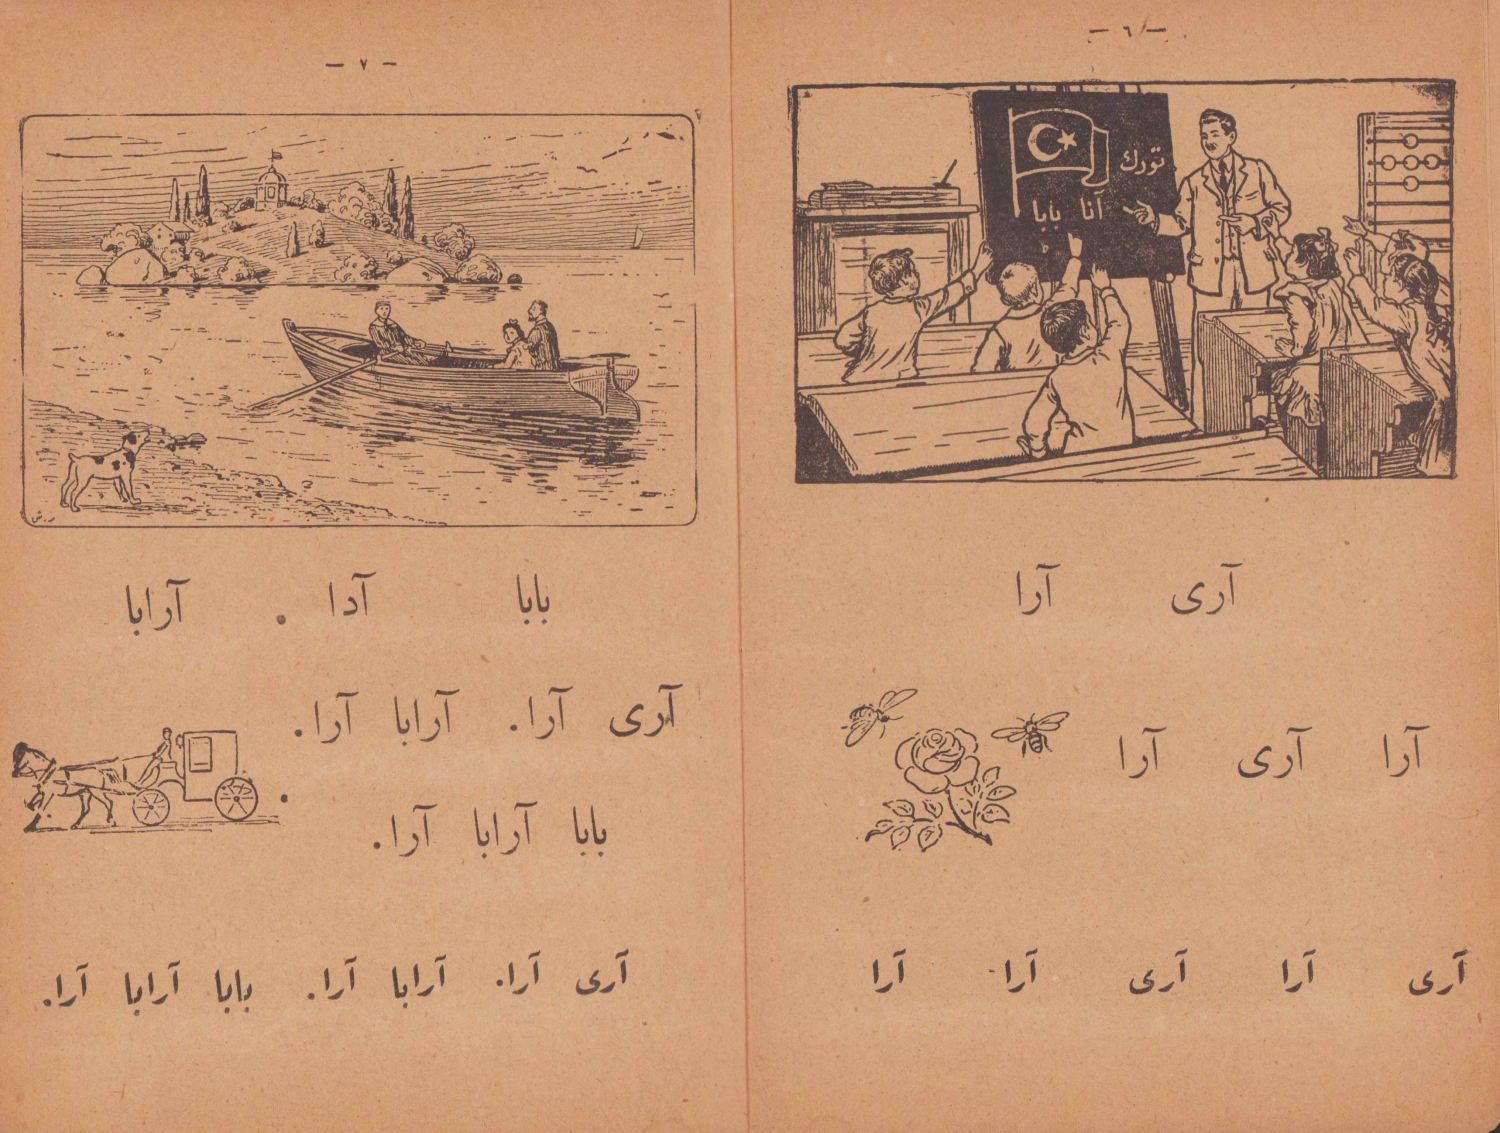 — ٦ —
تورك
آنا بابا
آری آرا
آرا آری آرا
آری آرا آری آرا آرا
— ٧ —
بابا آدا . آرابا
آری آرا. آرابا آرا.
بابا آرابا آرا.
آری آرا. آرابا آرا. بابا آرابا آرا.